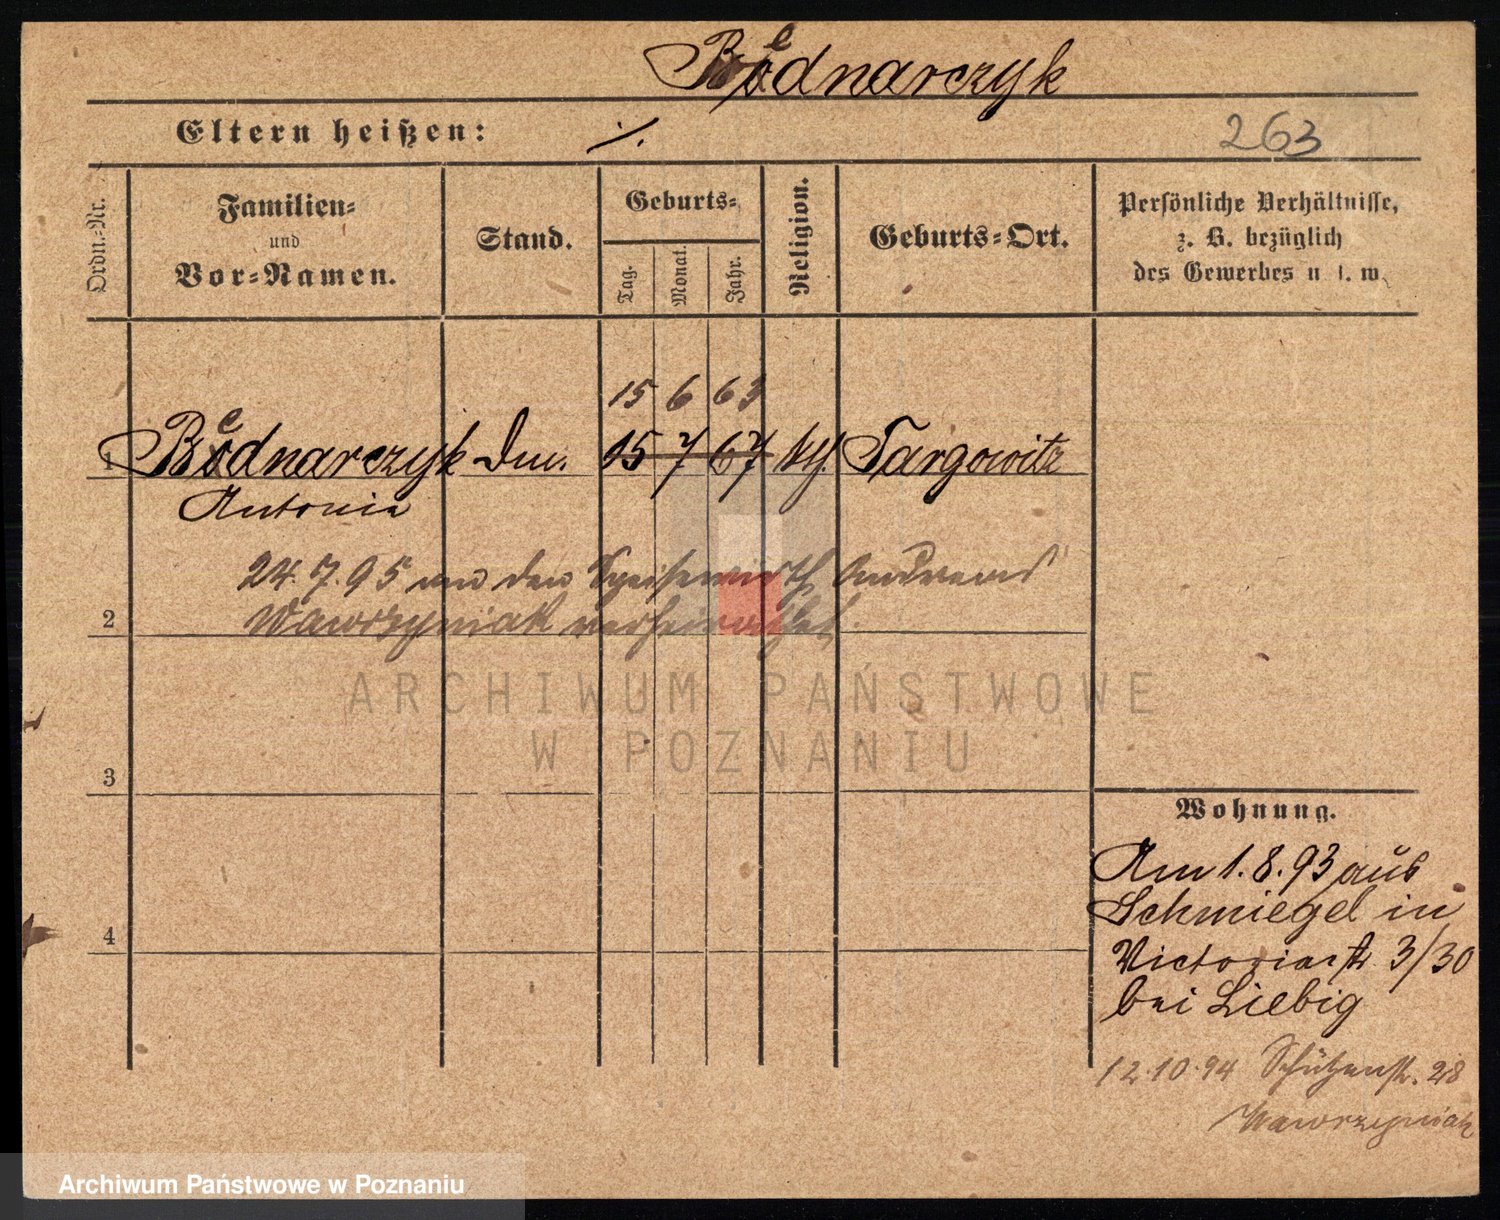 Bednarczyk
Eltern heißen: ./.
263
Ordn.-Nr.
Familien-
und
Vor-Namen.
Stand.
Geburts-
Tag.
Monat.
Jahr.
Religion.
Geburts-Ort.
Persönliche Verhältnisse,
z. B. bezüglich
des Gewerbes u. s. w.
15 6 63
1 Bednarczyk 15 7 67 kth. Targowitz
Antonie
24.7.95 an den Speisewirth Andreas
Wawrzyniak verheirathet.
2
ARCHIWUM PAŃSTWOWE
W POZNANIU
3
4
Wohnung.
Am 1.8.93 aus
Schmiegel in
Victoriastr 3/30
bei Liebig
12.10.94 Schützenstr. 28
Wawrzyniak
Archiwum Państwowe w Poznaniu